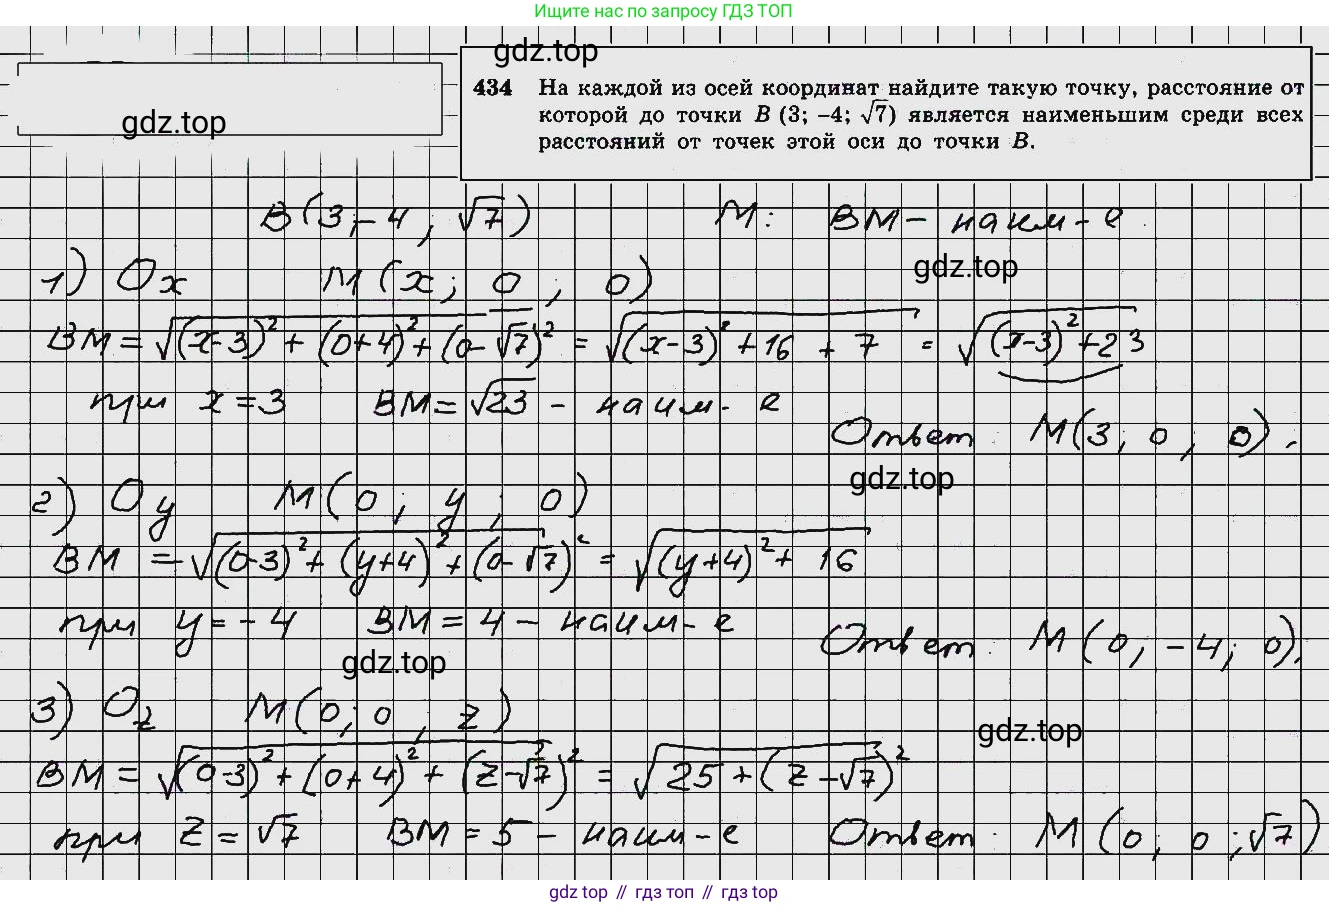 Ищите нас по запросу ГДЗ ТОП
gdz.top
gdz.top
434 На каждой из осей координат найдите такую точку, расстояние от
которой до точки B (3; –4; √7) является наименьшим среди всех
расстояний от точек этой оси до точки B.
B(3; -4; √7) M: BM - наим-е
gdz.top
1) Ox M(x; 0; 0)
BM = √((x-3)² + (0+4)² + (0-√7)²) = √((x-3)² + 16 + 7) = √((x-3)² + 23)
при x = 3 BM = √23 - наим-е
Ответ M(3; 0; 0).
gdz.top
2) Oy M(0; y; 0)
BM = √((0-3)² + (y+4)² + (0-√7)²) = √((y+4)² + 16)
при y = -4 BM = 4 - наим-е
Ответ: M(0; -4; 0).
gdz.top
3) Oz M(0; 0; z)
gdz.top
BM = √((0-3)² + (0+4)² + (z-√7)²) = √(25 + (z-√7)²)
при z = √7 BM = 5 - наим-е Ответ: M(0; 0; √7)
gdz top // гдз топ // гдз top